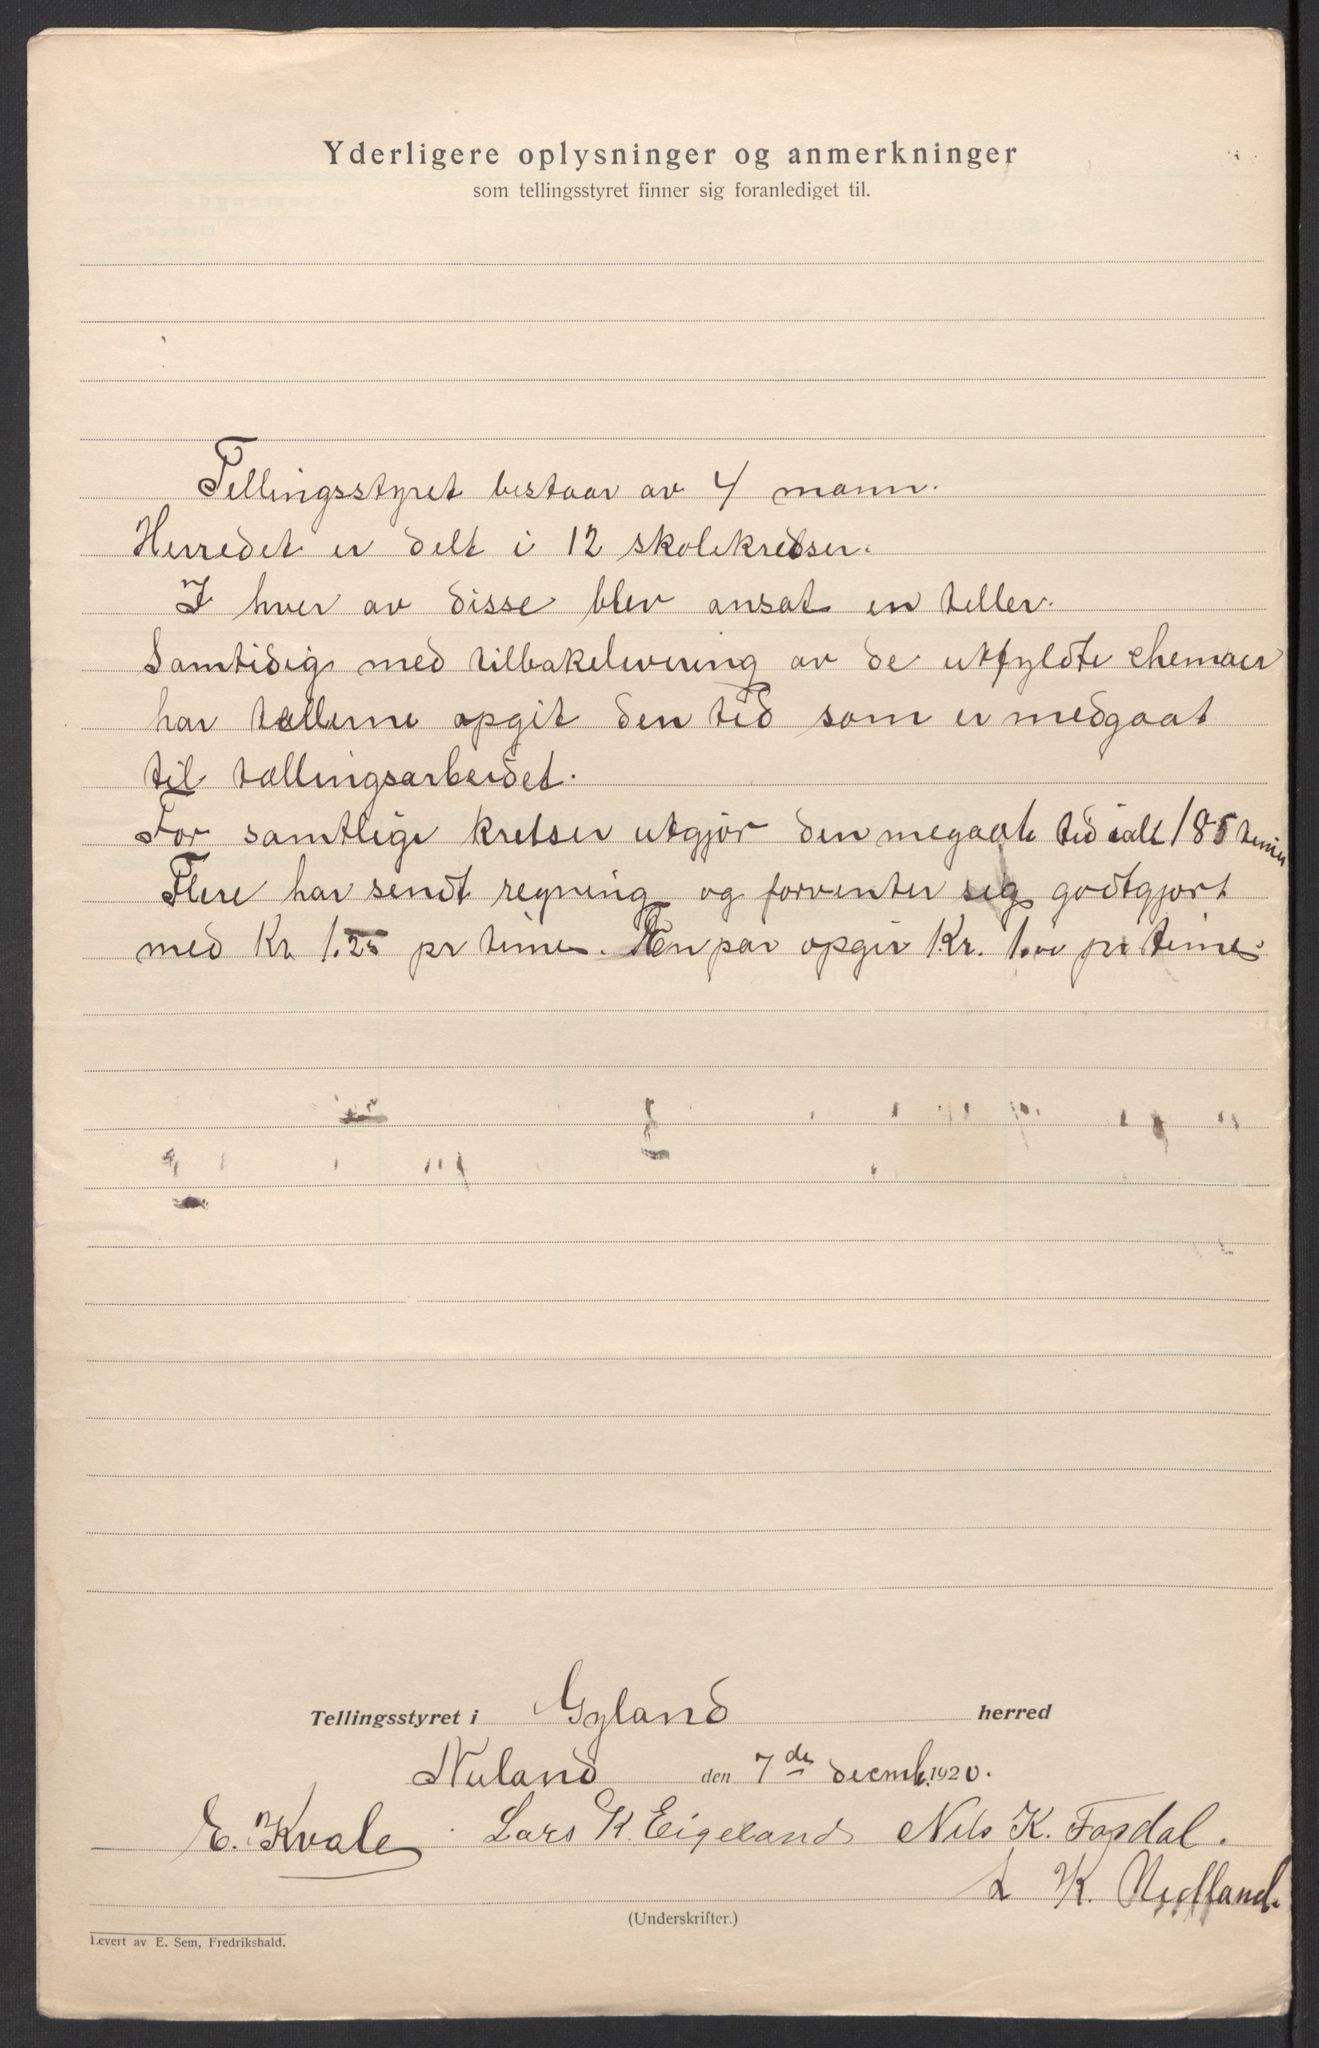 Yderligere oplysninger og anmerkninger
som tellingsstyret finner sig foranlediget til.
Tellingsstyret bestaar av 4 mann.
Herredet er delt i 12 skolekredser.
I hver av disse blev ansat en teller.
Samtidig med tilbakelevering av de utfyldte chemaer
har tællerne opgit den tid som er medgaat
til tællingsarbeidet.
For samtlige kretser utgjør den megaate tid ialt 185 timer
Flere har sendt regning og forventer sig godtgjort
med Kr 1.25 pr time. En par opgir Kr. 1.00 pr time.
Tellingsstyret i Gyland herred
Nuland den 7de decmb. 1920.
E. Kvale. Lars K. Eigeland Nils K. Fogdal.
L K. Nedland.
(Underskrifter.)
Levert av E. Sem, Fredrikshald.